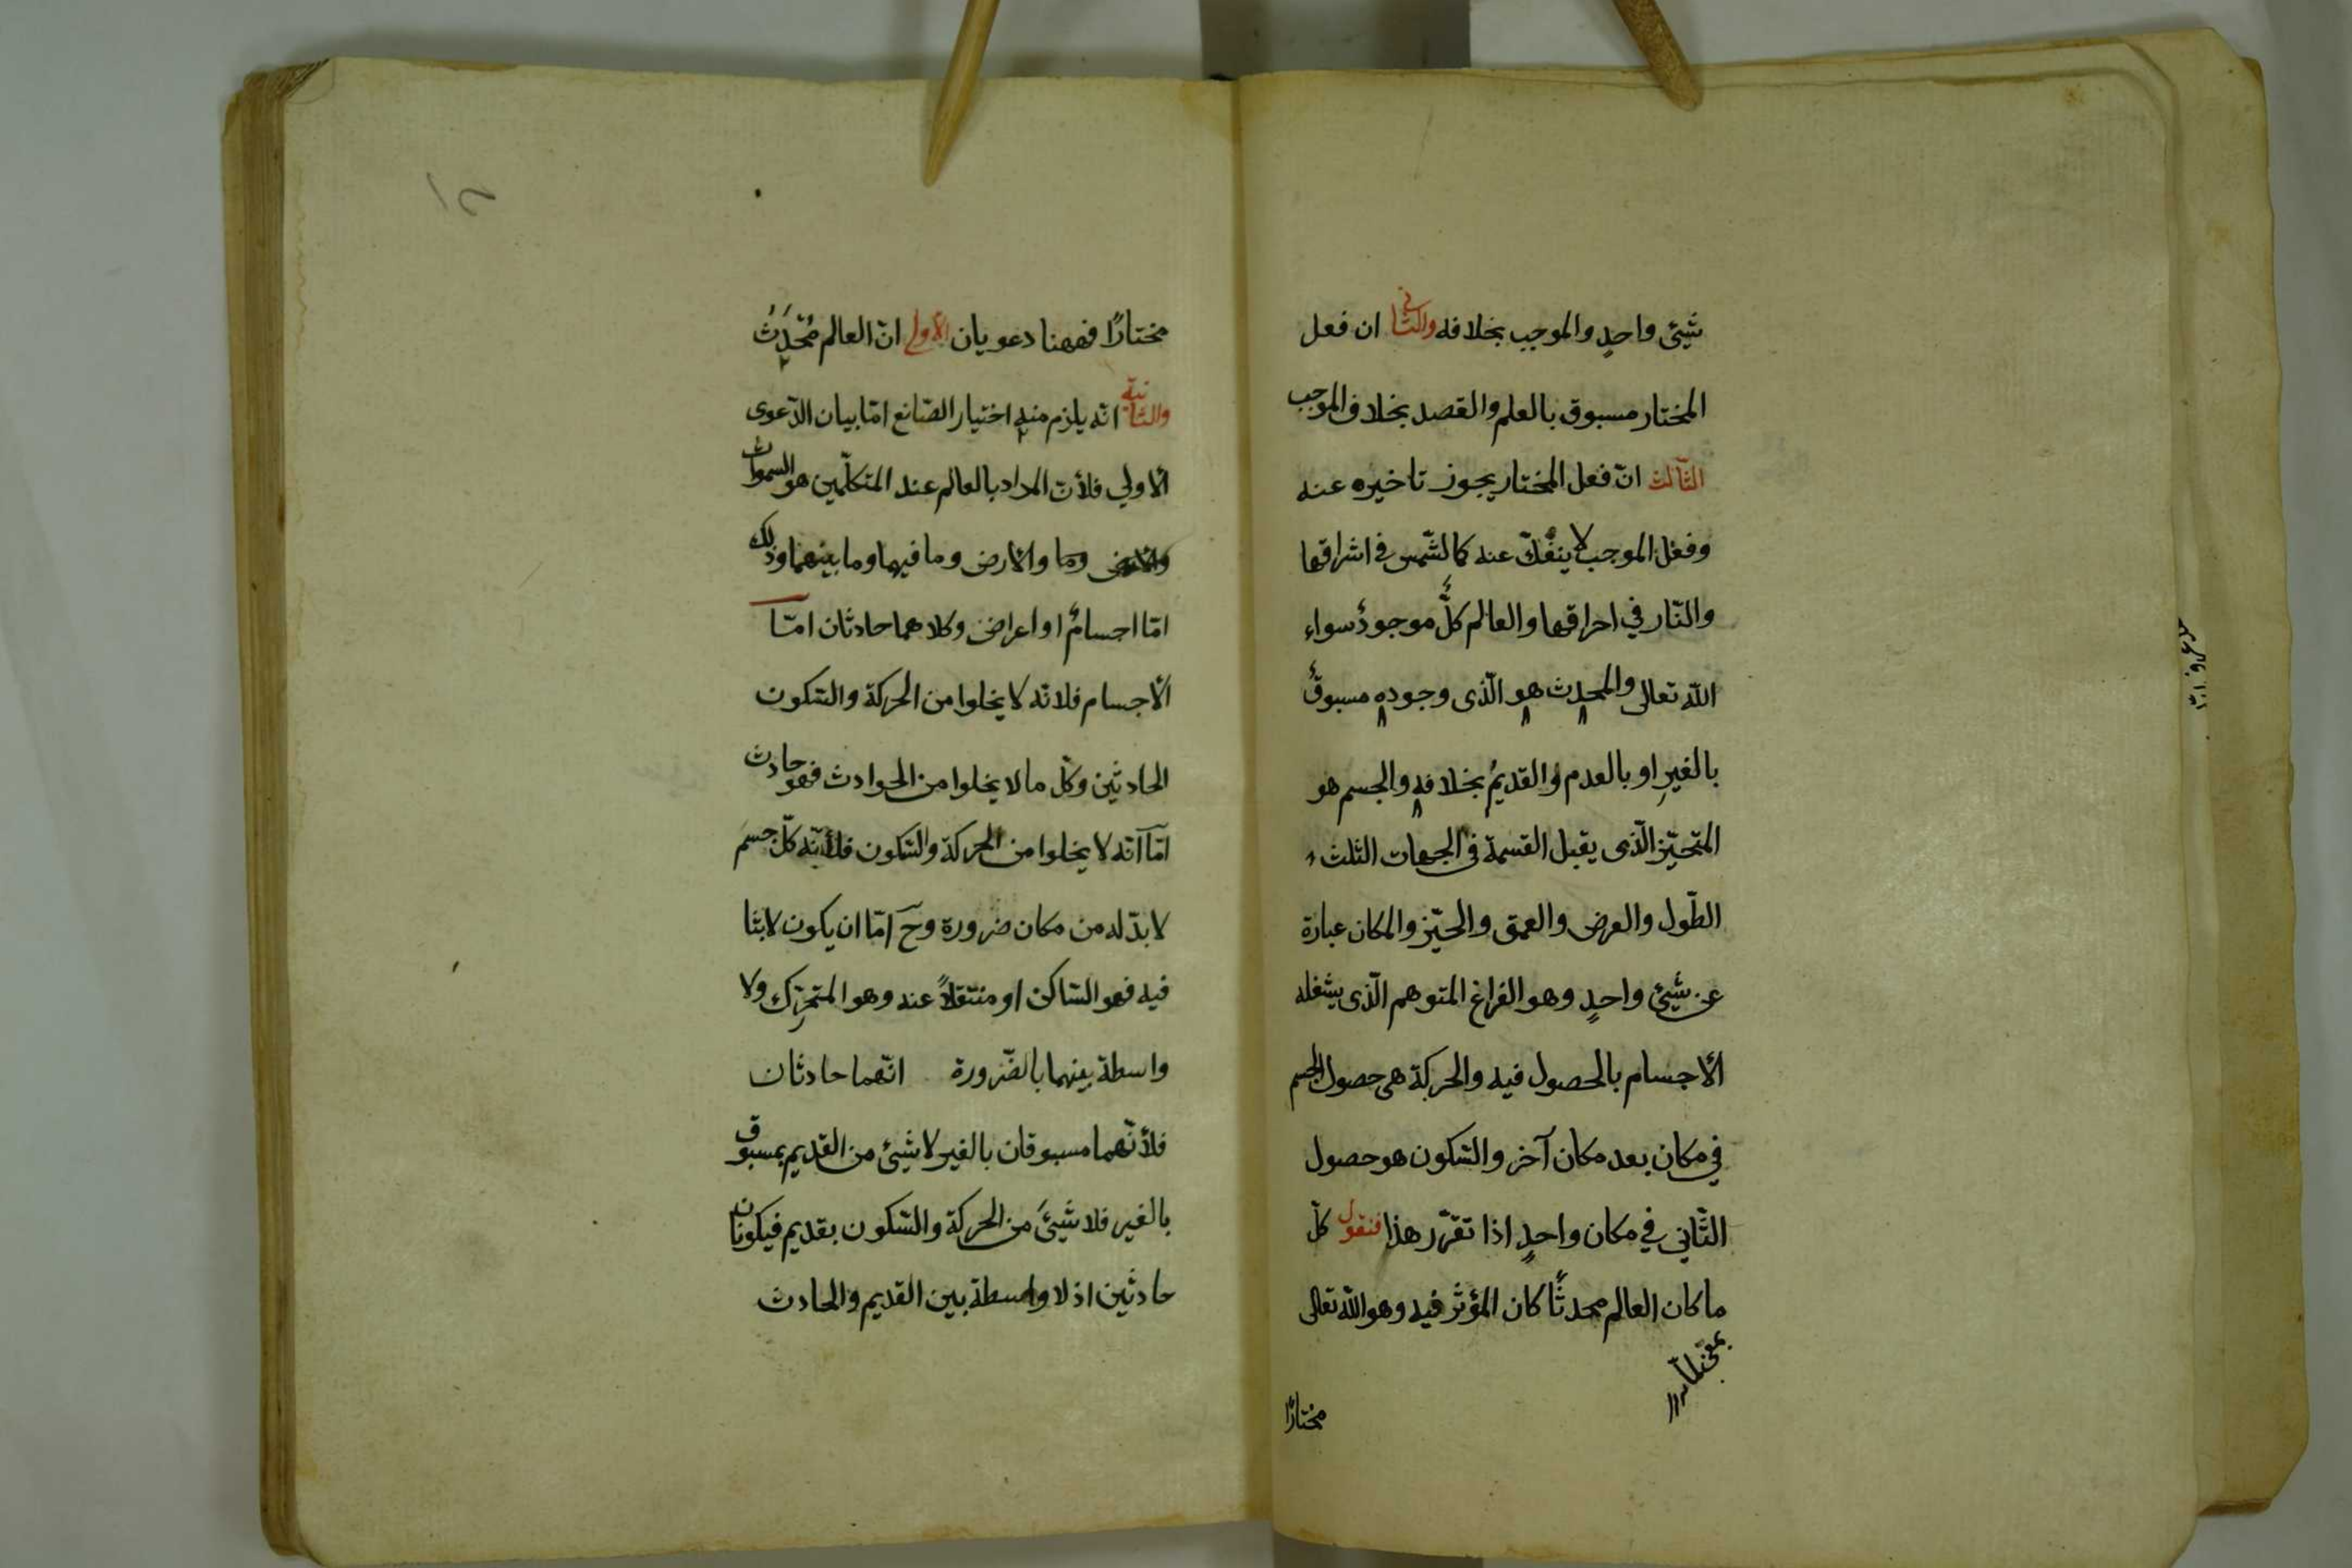 شيئ واحدٍ والموجب بخلافه والثاني ان فعل
المختار مسبوق بالعلم والقصد بخلاف الموجب
الثّالث انّ فعل المختار يجوز تاخيره عنه
وفعل الموجب لا ينفكّ عنه كالشّمس في اشراقها
والنّار في احراقها والعالم كلّ موجودٌ سواء
الله تعالى والمحدث هو الّذى وجوده مسبوقٌ
بالغيرِ او بالعدم والقديمُ بخلافه والجسم هو
المتحيّز الّذى يقبل القسمة في الجهات الثلث
الطّول والعرض والعمق والحيّز والمكان عبارة
عن شيئ واحدٍ وهو الفراغ المتوهم الّذى يشغله
الأجسام بالحصول فيه والحركة هى حصول الجسم
في مكان بعد مكان آخر والسّكون هو حصول
الثّاني في مكان واحدٍ اذا تقرّر هذا فنقول كلّ
ما كان العالم محدثًا كان المؤثّر فيه وهو الله تعالى
مختارًا
١٢
مختارًا فههنا دعويان الأولى انّ العالم مُحْدَثُ
والثانية انّه يلزم منه اختيار الصّانع امّا بيان الدّعوى
الأولي فلأنّ المراد بالعالم عند المتكلّمين هو السموات
والارض وما والأرض وما فيهما وما بينهما وذلك
امّا اجسامٌ او اعراض وكلاهما حادثان امّا
الأجسام فلانّه لا يخلوا من الحركة والسّكون
الحادثين وكلّ ما لا يخلوا من الحوادث فهو حادث
امّا انّه لا يخلوا من الحركة والسّكون فلأنّه كلّ جسم
لا بدّ له من مكان ضرورة وحَ امّا ان يكون لابثا
فيه فهو السّاكن او منتقلاً عنه وهو المتحرّك ولا
واسطة بينهما بالضّرورة انّهما حادثان
فلأنّهما مسبوقان بالغير لا شيئ من القديم بمسبوق
بالغير فلا شيئَ من الحركة والسّكون بقديم فيكونان
حادثين اذ لا واسطة بين القديم والحادث